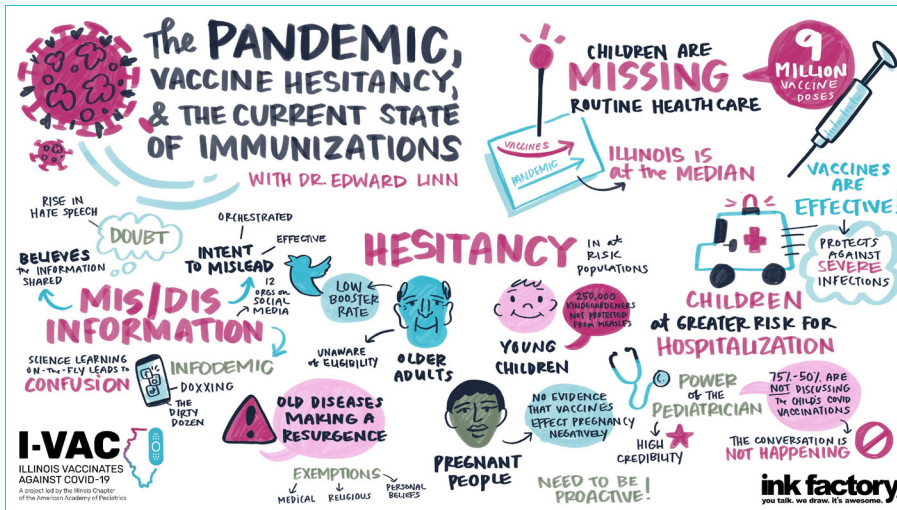 The PANDEMIC,
VACCINE HESITANCY,
& THE CURRENT STATE
OF IMMUNIZATIONS
WITH DR. EDWARD LINN
CHILDREN ARE
MISSING
ROUTINE HEALTH CARE
9
MILLION
VACCINE
DOSES
VACCINES
PANDEMIC
ILLINOIS IS
at the MEDIAN
VACCINES
ARE
EFFECTIVE!
PROTECTS
AGAINST
SEVERE
INFECTIONS
RISE IN
HATE SPEECH
DOUBT
BELIEVES
the INFORMATION
SHARED
ORCHESTRATED
EFFECTIVE
INTENT
TO MISLEAD
12
ORGS on
SOCIAL
MEDIA
MIS/DIS
INFORMATION
SCIENCE LEARNING
ON-the-FLY LEADS to
CONFUSION
INFODEMIC
DOXXING
THE
DIRTY
DOZEN
HESITANCY
IN at
RISK
POPULATIONS
LOW
BOOSTER
RATE
UNAWARE
of ELIGIBILITY
OLDER
ADULTS
250,000
KINDEGARDENERS
NOT PROTECTED
FROM MEASLES
YOUNG
CHILDREN
CHILDREN
at GREATER RISK FOR
HOSPITALIZATION
OLD DISEASES
MAKING A
RESURGENCE
EXEMPTIONS
MEDICAL
RELIGIOUS
PERSONAL
BELIEFS
PREGNANT
PEOPLE
NO EVIDENCE
THAT VACCINES
EFFECT PREGNANCY
NEGATIVELY
NEED TO BE
PROACTIVE!
POWER
of the
PEDIATRICIAN
HIGH
CREDIBILITY
75%-50% ARE
NOT DISCUSSING
THE CHILD'S COVID
VACCINATIONS
THE CONVERSATION IS
NOT HAPPENING
I-VAC
ILLINOIS VACCINATES
AGAINST COVID-19
A project led by the Illinois Chapter
of the American Academy of Pediatrics
ink factory
you talk. we draw. it's awesome.